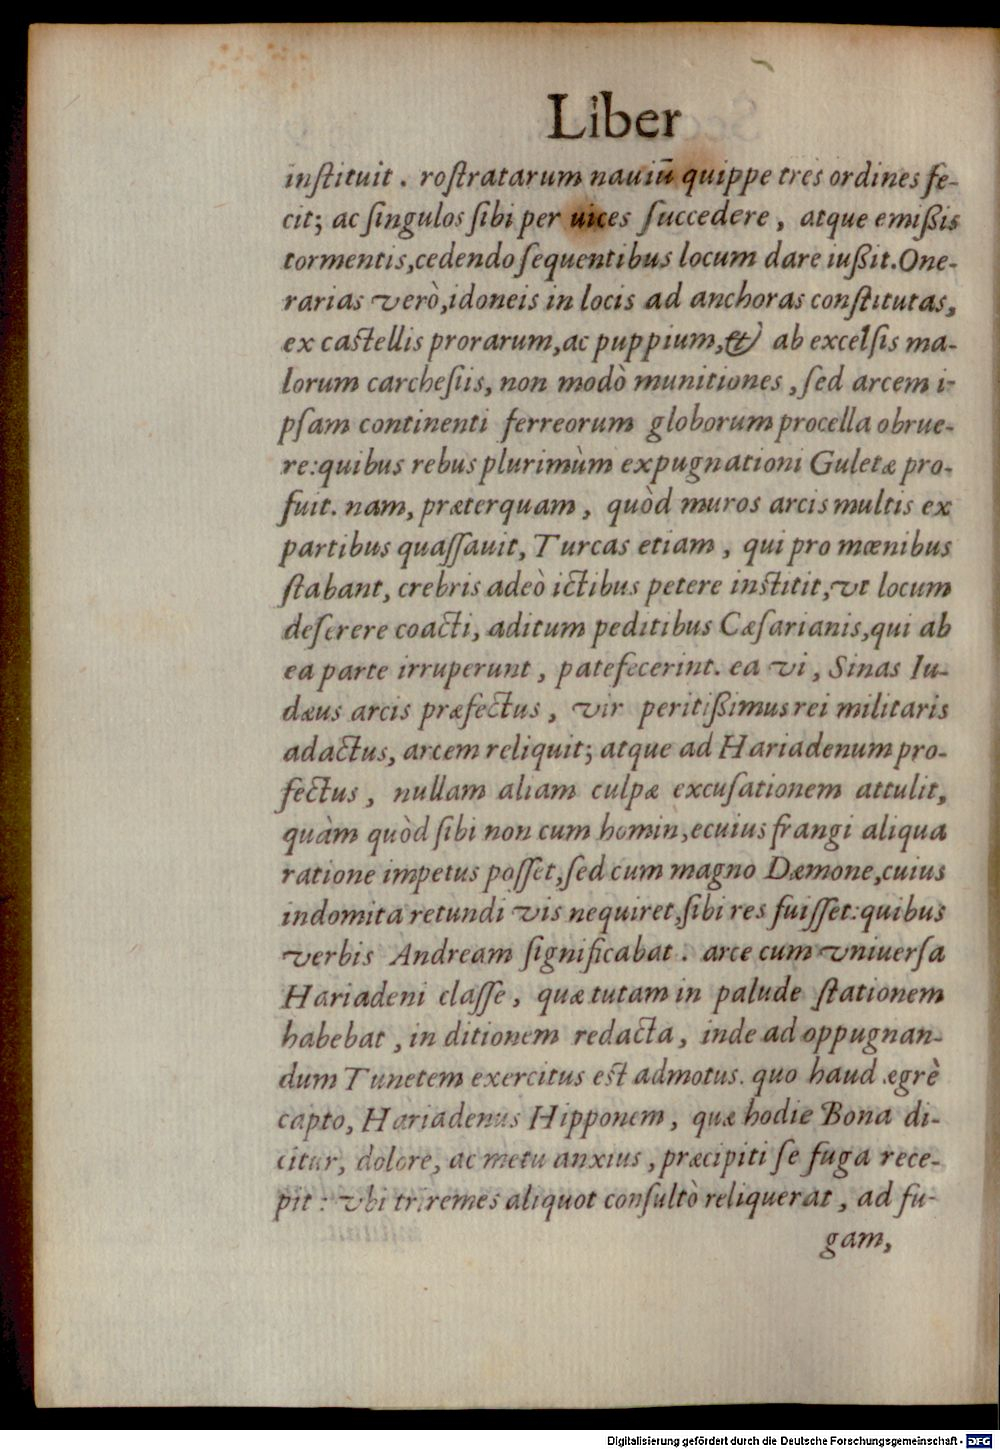 Liber
inſtituit . roſtratarum nauiū quippe tres ordines fe-
cit; ac ſingulos ſibi per uices ſuccedere , atque emißis
tormentis,cedendo ſequentibus locum dare iußit.One-
rarias verò,idoneis in locis ad anchoras conſtitutas,
ex castellis prorarum,ac puppium,& ab excelſis ma-
lorum carcheſiis, non modò munitiones , ſed arcem i-
pſam continenti ferreorum globorum procella obrue-
re:quibus rebus plurimùm expugnationi Guletæ pro-
fuit. nam, præterquam , quòd muros arcis multis ex
partibus quaſſauit, Turcas etiam , qui pro mœnibus
ſtabant, crebris adeò ictibus petere institit,vt locum
deſerere coacti, aditum peditibus Cæſarianis,qui ab
ea parte irruperunt , patefecerint. ea vi , Sinas Iu-
dæus arcis præfectus , vir peritißimus rei militaris
adactus, arcem reliquit; atque ad Hariadenum pro-
fectus , nullam aliam culpæ excuſationem attulit,
quàm quòd ſibi non cum homin,ecuius frangi aliqua
ratione impetus poſſet,ſed cum magno Dæmone,cuius
indomita retundi vis nequiret,ſibi res fuiſſet:quibus
verbis Andream ſignificabat . arce cum vniuerſa
Hariadeni claſſe , quæ tutam in palude ſtationem
habebat , in ditionem redacta , inde ad oppugnan-
dum Tunetem exercitus est admotus. quo haud ægrè
capto, Hariadenus Hipponem , quæ hodie Bona di-
citur, dolore, ac metu anxius , præcipiti ſe fuga rece-
pit : vbi triremes aliquot conſultò reliquerat , ad fu-
gam,
Digitalisierung gefördert durch die Deutsche Forschungsgemeinschaft - DFG